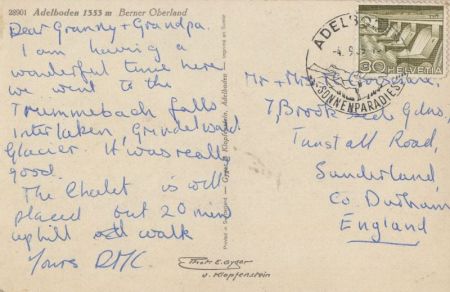 28901 Adelboden 1353 m Berner Oberland
Dear Granny + Grandpa.
I am having a
wonderful time here
we went to the
Trummebach falls
Interlaken, Grindelwald
Glacier. It was really
good.
The Chalet is well
placed but 20 mins
uphill walk
Yours DMC
Gyger & Klopfenstein, Adelboden
Printed in Switzerland
Phot. E. Gyger
u. Klopfenstein
ADELBODEN
SONNENPARADIES
30 HELVETIA
Mr + Mrs
7, Brook Gdns,
Tunstall Road,
Sunderland,
Co. Durham
England